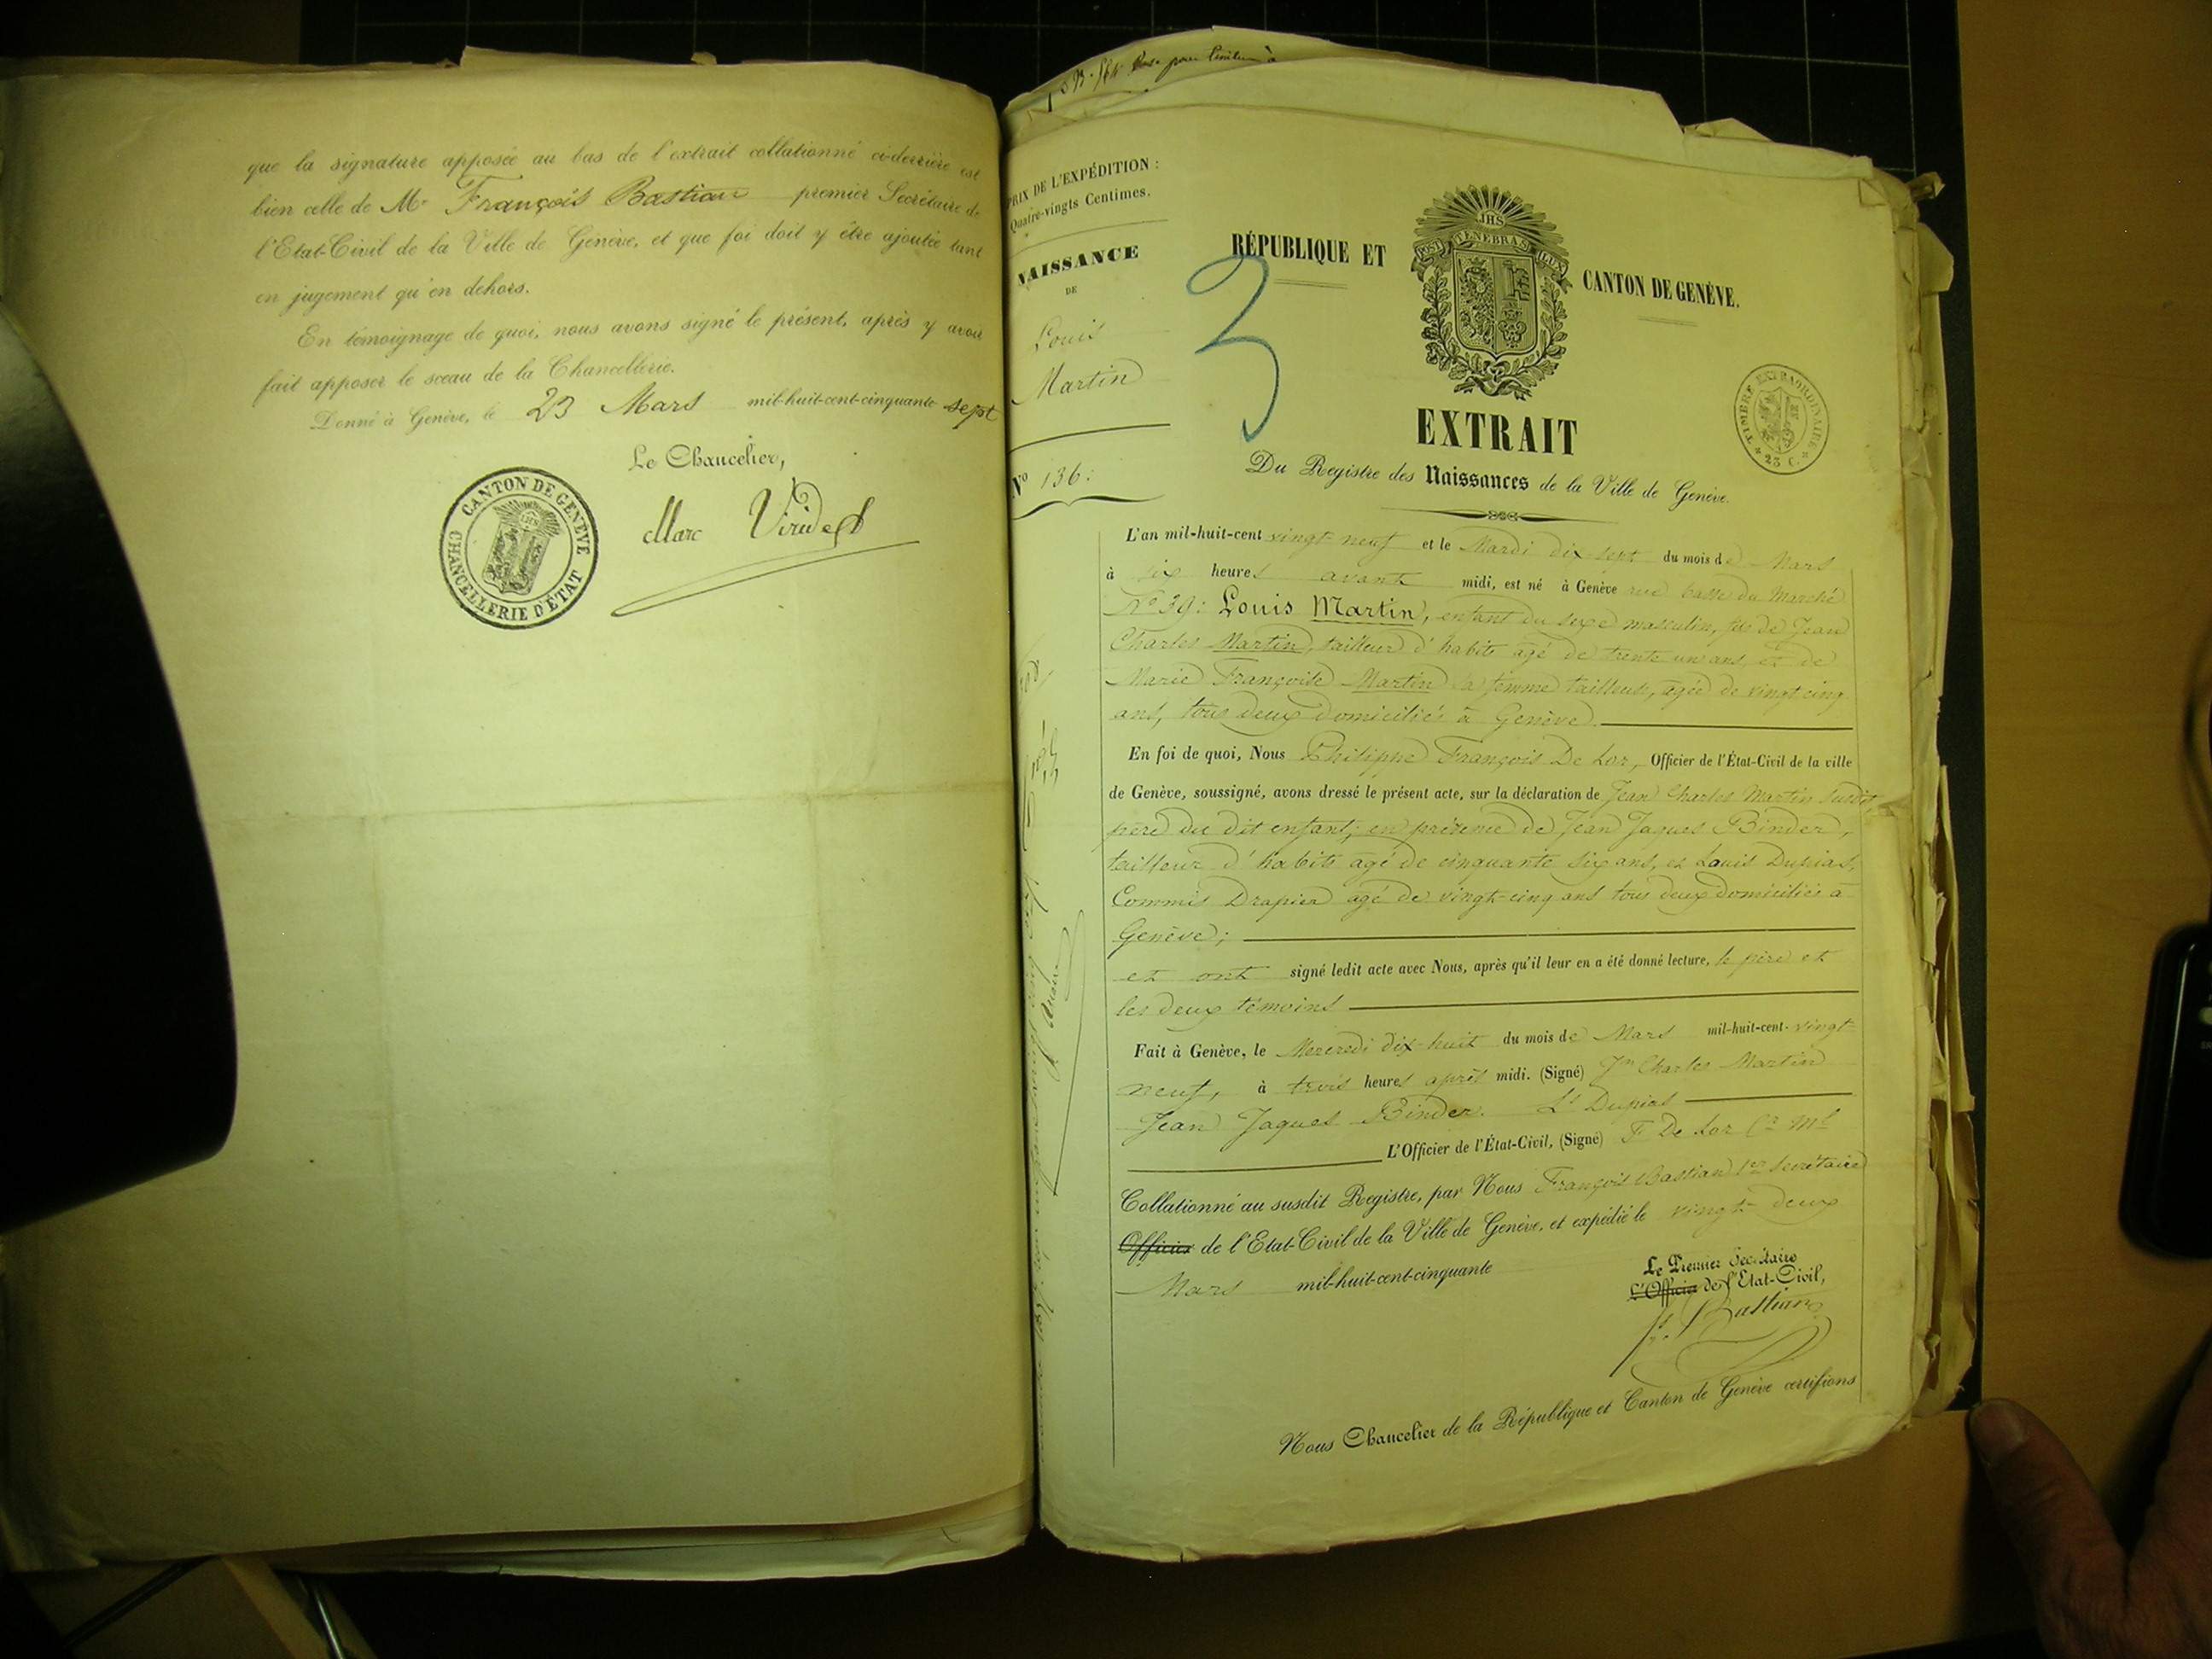 que la signature apposée au bas de l'extrait collationné ci-derrière est
bien celle de Mr François Bastian premier Secrétaire de
l'Etat-Civil de la Ville de Genève, et que foi doit y être ajoutée tant
en jugement qu'en dehors.
En témoignage de quoi, nous avons signé le présent, après y avoir
fait apposer le sceau de la Chancellerie.
Donné à Genève, le 23 Mars mil-huit-cent-cinquante sept
Le Chancelier,
Marc Viridet
CANTON DE GENÈVE
CHANCELLERIE D'ÉTAT
PRIX DE L'EXPÉDITION :
Quatre-vingts Centimes.
NAISSANCE
DE
Louis
Martin
No 136:
3
JHS
POST TENEBRAS LUX
RÉPUBLIQUE ET CANTON DE GENÈVE.
TIMBRE EXTRAORDINAIRE
23 C.
EXTRAIT
Du Registre des Naissances de la Ville de Genève.
L'an mil-huit-cent vingt neuf et le Mardi dix-sept du mois de Mars
à six heures avant midi, est né à Genève rue basse du Marché
No 39: Louis Martin, enfant du sexe masculin, fils de Jean
Charles Martin, tailleur d'habits agé de trente un ans, et de
Marie Françoise Martin sa femme tailleuse, agée de vingt cinq
ans, tous deux domiciliés à Genève.
En foi de quoi, Nous Philippe François De Lor, Officier de l'État-Civil de la ville
de Genève, soussigné, avons dressé le présent acte, sur la déclaration de Jean Charles Martin susdit,
père du dit enfant; en présence de Jean Jaques Binder,
tailleur d'habits agé de cinquante six ans, et Louis Dupias,
Commis Drapier agé de vingt-cinq ans tous deux domiciliés à
Genève;
et ont signé ledit acte avec Nous, après qu'il leur en a été donné lecture, le père et
les deux témoins
Fait à Genève, le Mercredi dix-huit du mois de Mars mil-huit-cent-vingt
neuf, à trois heures après midi. (Signé) Jn Charles Martin
Jean Jaques Binder. Ls Dupias
L'Officier de l'État-Civil, (Signé) F. De Lor
Collationné au susdit Registre, par Nous François Bastian 1er Secrétaire
Officier de l'Etat-Civil de la Ville de Genève, et expédié le vingt-deux
Mars mil-huit-cent-cinquante
Le Premier Secrétaire
L'Officier de l'Etat-Civil,
fs. Bastian
Nous Chancelier de la République et Canton de Genève certifions